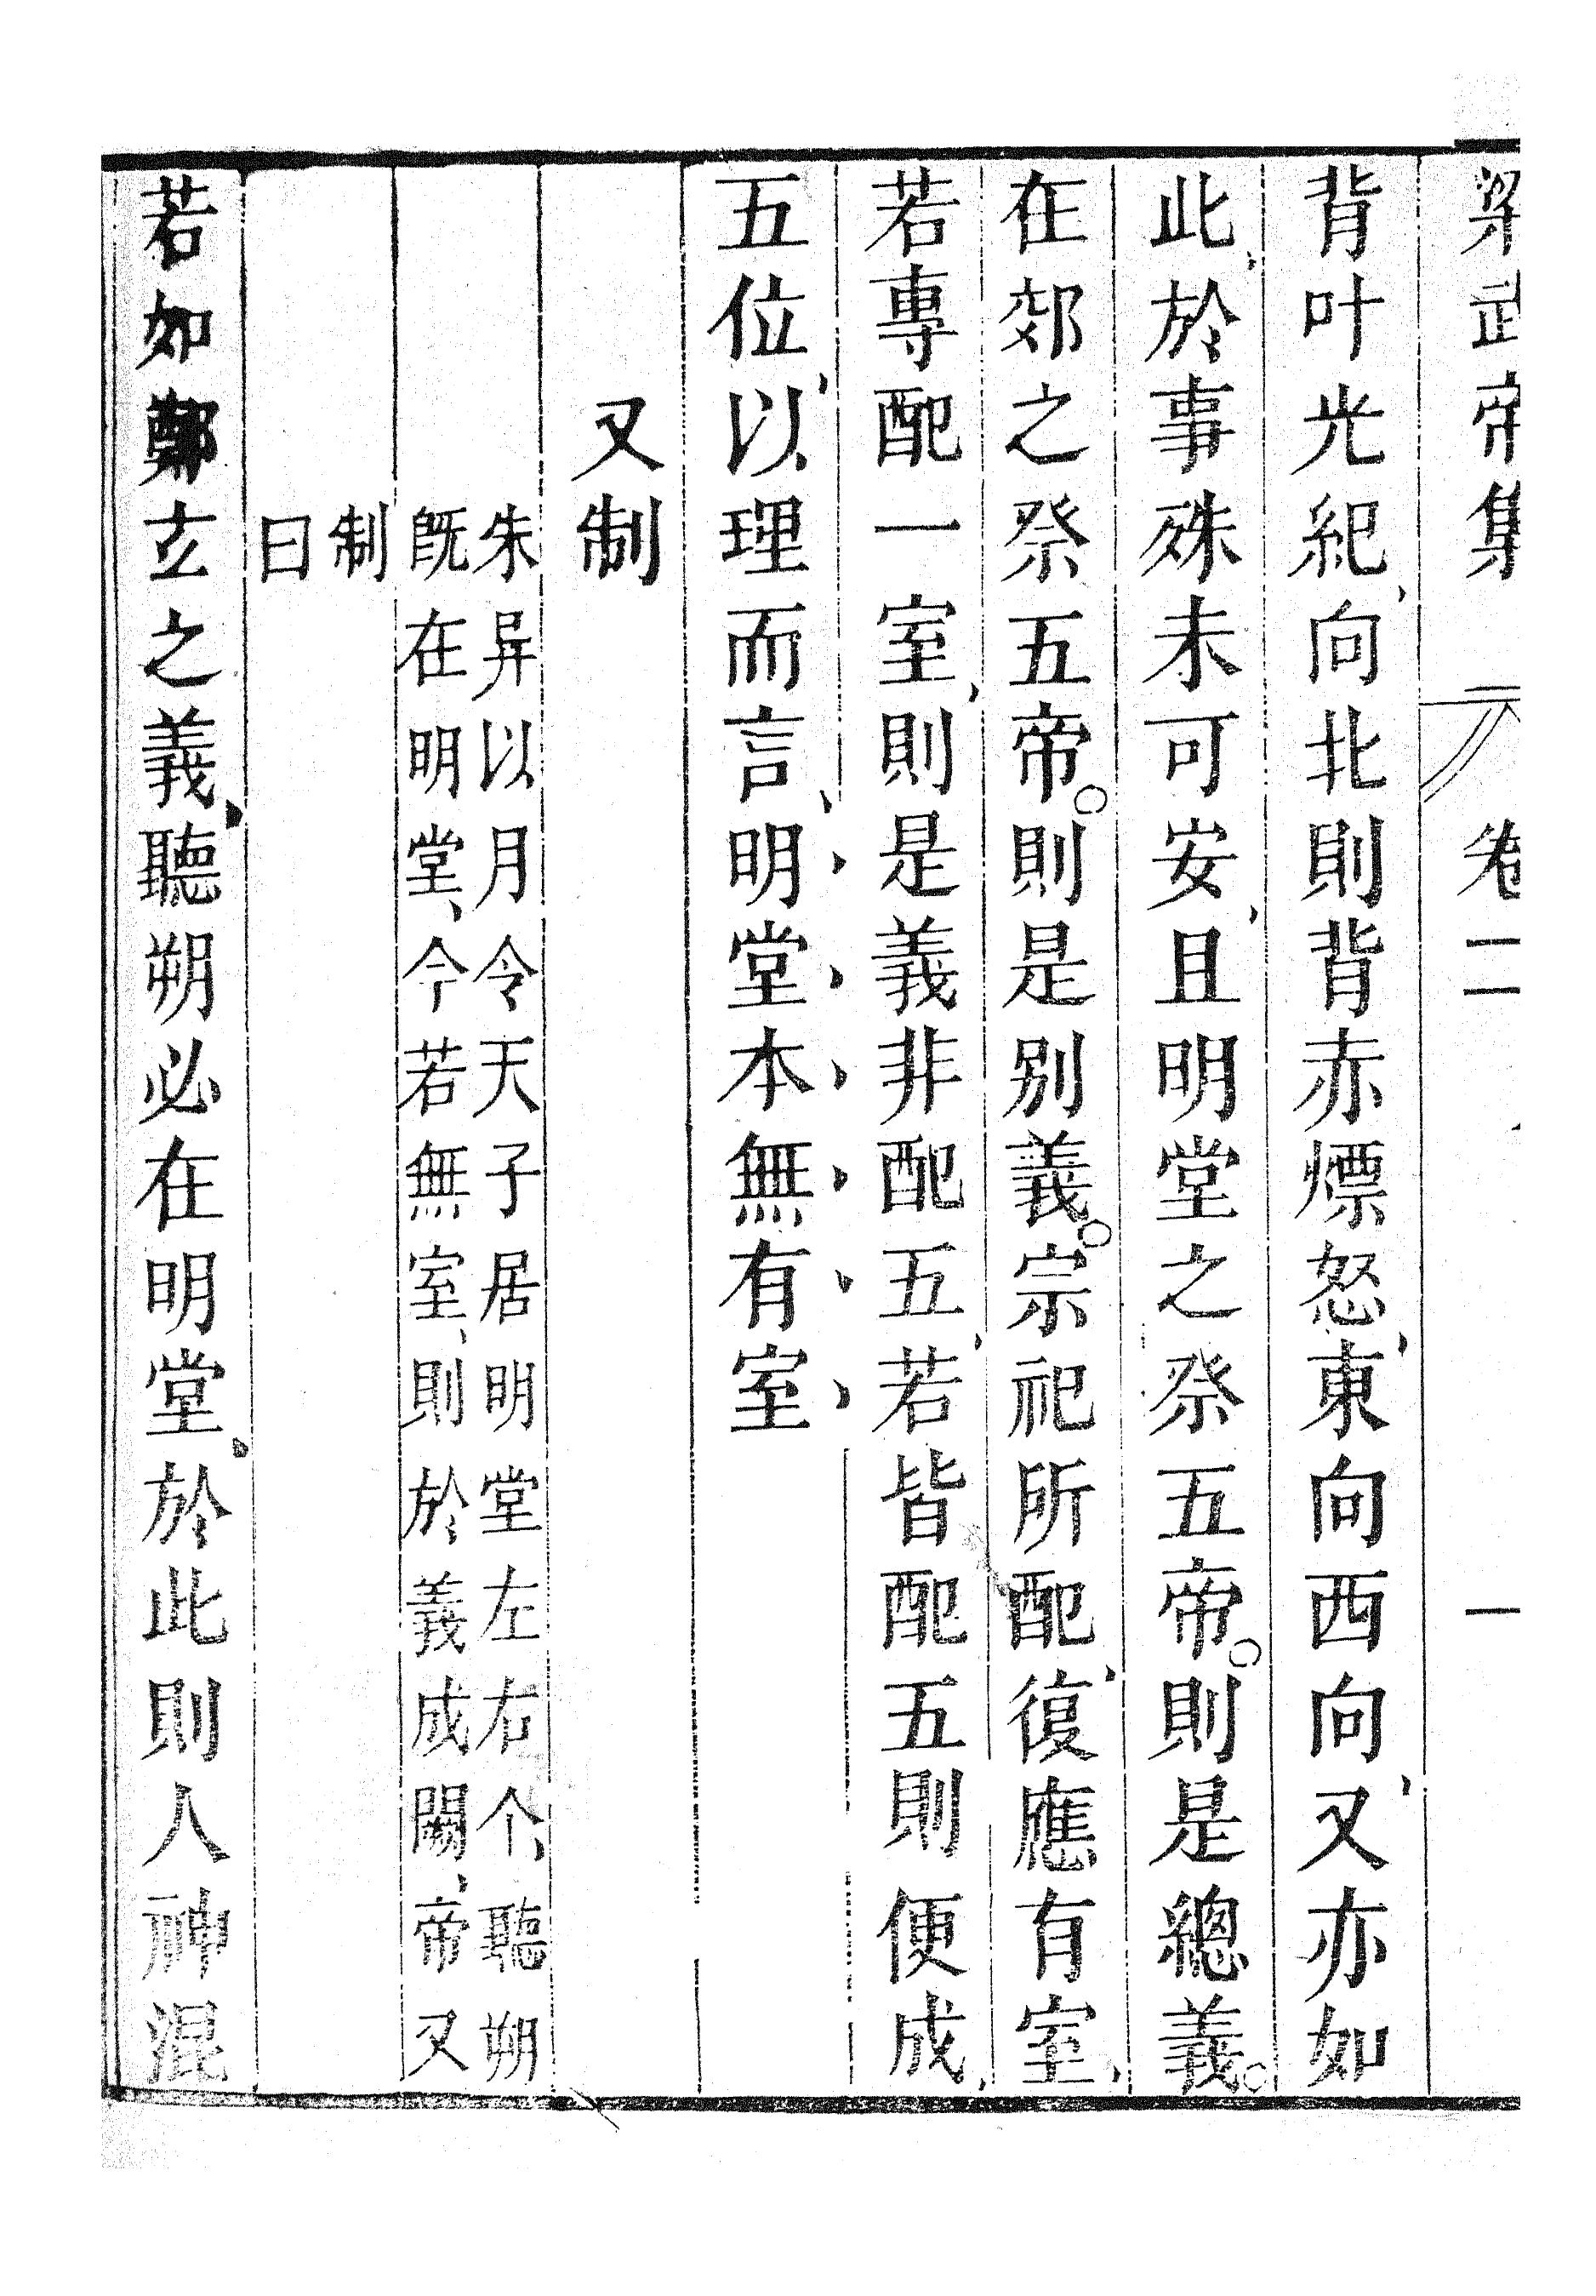 梁武帝集　卷二　一
背叶光紀、向北則背赤熛怒、東向西向、又亦如
此、於事殊未可安、且明堂之祭五帝。則是總義。
在郊之祭五帝。則是别義。宗祀所配、復應有室、
若專配一室、則是義非配五、若皆配五則便成、
五位、以理而言、明、堂、本、無、有、室、
又制
朱异以月令天子居明堂左右个、聽朔
既在明堂、今若無室、則於義成闕、帝又
制
曰
若如鄭玄之義、聽朔必在明堂、於此則人神混